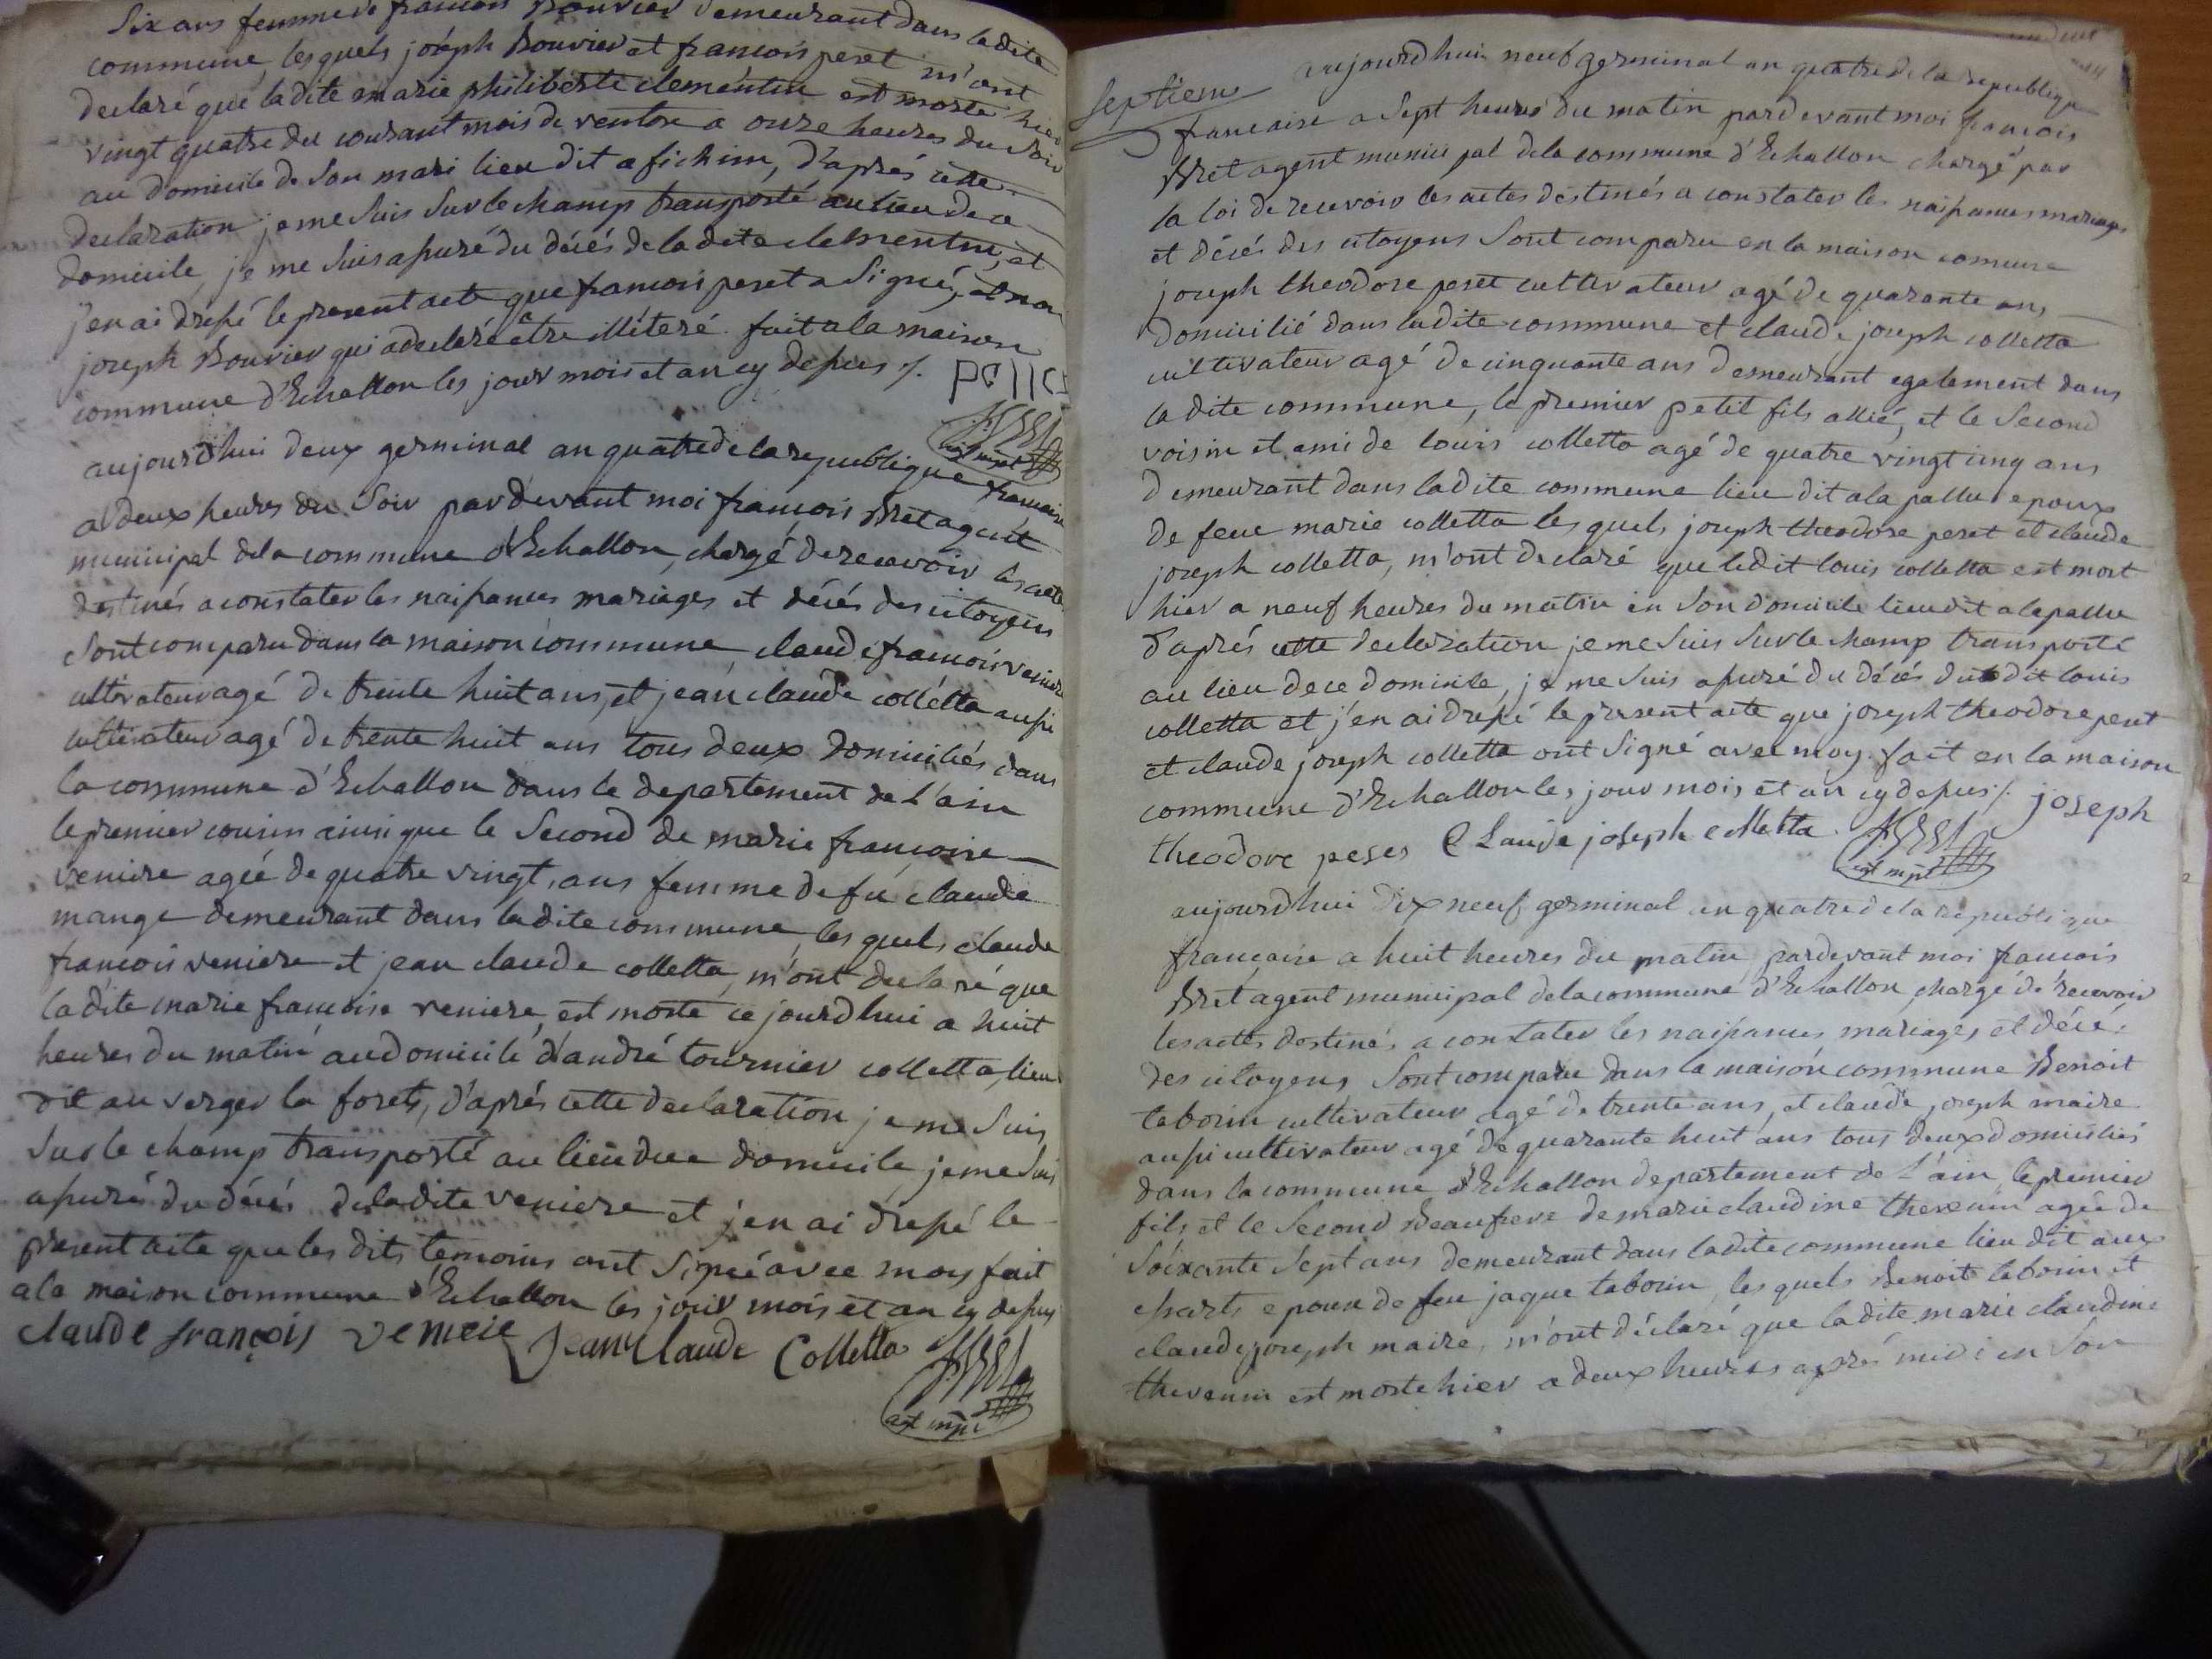 Six ans femme de francois Bouvier demeurant dans la dite
commune, les quels joseph Bouvier et francois peret m'ont
declaré que ladite marie philiberte clementin est morte hier
vingt quatre du courant mois de ventose a onze heures du soir
au domicile de son mari lieu dit a fichin, d'aprés cette
declaration je me suis sur le champ transporté au lieu de ce
domicile, je me suis assuré du décés de la dite clementin, et
j'en ai dressé le present acte que francois peret a signé, et non
joseph Bouvier qui a declaré etre illiteré. fait a la maison
commune d'Echallon les jour mois et an cy dessus /.
aujourd'hui deux germinal an quatre de la republique francaise
a deux heures du soir pardevant moi francois Bret agent
municipal dela commune d'Echallon, chargé de recevoir les actes
destinés a constater les naissances mariages et décés des citoyens
sont comparu dans la maison commune, claude francois veniere
cultivateur agé de trente huit ans, et jean claude colletta aussi
cultivateur agé de trente huit ans tous deux domiciliés dans
la commune d'Echallon dans le departement de l'ain
le premier cousin ainsi que le second de marie francoise
veniere agée de quatre vingt ans femme de fu claude
mange demeurant dans ladite commune, les quels claude
francois veniere et jean claude colletta, m'ont declaré que
ladite marie francoise veniere est morte ce jourd'hui a huit
heures du matin au domicile d'andré tournier colletta, lieu
dit au verger la forets, d'aprés cette declaration je me suis
sur le champ transporté au lieu du ce domicile, je me suis
assuré du décés de ladite veniere et j'en ai dressé le
present acte que les dits temoins ont signé avec moy fait
a la maison commune d'Echallon les jour mois et an cy dessus
claude françois veniere jean Claude Colletta
agt mpl
septieme
aujourd'hui neuf germinal an quatre de la republique
francaise a sept heures du matin pardevant moi francois
Bret agent municipal dela commune d'Echallon chargé par
la loi de recevoir les actes destinés a constater les naissances mariages
et décés des citoyens sont comparu en la maison comune
joseph theodore peret cultivateur agé de quarante ans
domicilié dans ladite commune et claude joseph colletta
cultivateur agé de cinquante ans demeurant egalement dans
la dite commune, le premier petit fils allié, et le second
voisin et ami de louis colletta agé de quatre vingt cinq ans
demeurant dans ladite commune lieu dit a la pallu epoux
de feue marie colletta les quels joseph theodore peret et claude
joseph colletta, m'ont declaré que ledit louis colletta est mort
hier a neuf heures du matin en son domicile lieu dit a la pallu
d'aprés cette declaration je me suis sur le champ transporté
au lieu de ce domicile, je me suis assuré du décés du dit louis
colletta et j'en ai dressé le present acte que joseph theodore peret
et claude joseph colletta ont signé avec moy. fait en la maison
commune d'Echallon les jour mois et an cy dessus /. joseph
theodore peres Claude joseph colletta
agt mpl
aujourd'hui dix neuf germinal an quatre dela republique
francaise a huit heures du matin, pardevant moi francois
Bret agent municipal dela commune d'Echallon chargé de recevoir
les actes destinés a constater les naissances mariages et décés
des citoyens sont comparu dans la maison commune Benoit
tabourin cultivateur agé de trente ans, et claude joseph maire
aussi cultivateur agé de quarante huit ans tous deux domiciliés
dans la commune d'Echallon departement de l'ain le premier
fils et le second Beaufrere de marie claudine thevenin agée de
soixante sept ans demeurant dans ladite commune lieu dit aux
epouse de feu jaque tabourin, les quels Benoit tabourin et
claude joseph maire, m'ont déclaré que ladite marie claudine
thevenin est morte hier a deux heures aprés midi en son